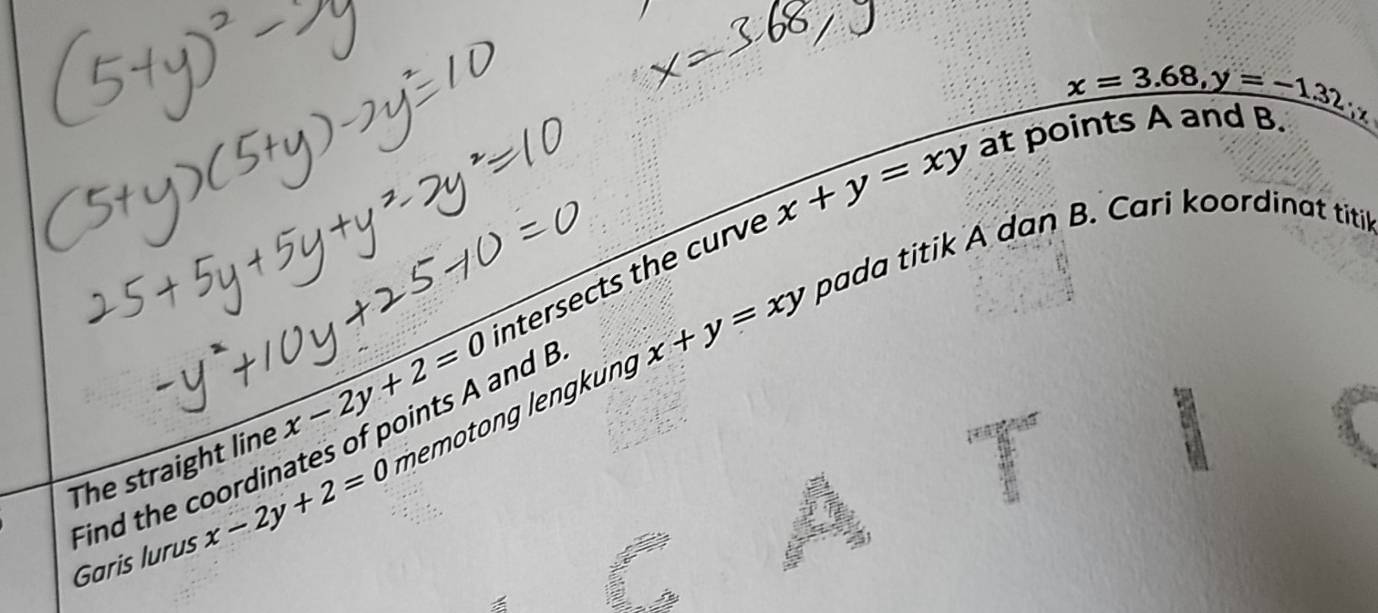 (5+y)² - 2y
(5+y)(5+y)-2y²=10
25+5y+5y+y²-2y²=10
-y²+10y+25-10=0
x=3.68, y
x = 3.68, y = -1.32; x
The straight line x - 2y + 2 = 0 intersects the curve x + y = xy at points A and B.
Find the coordinates of points A and B.
Garis lurus x - 2y + 2 = 0 memotong lengkung x + y = xy pada titik A dan B. Cari koordinat titik
C A T I C